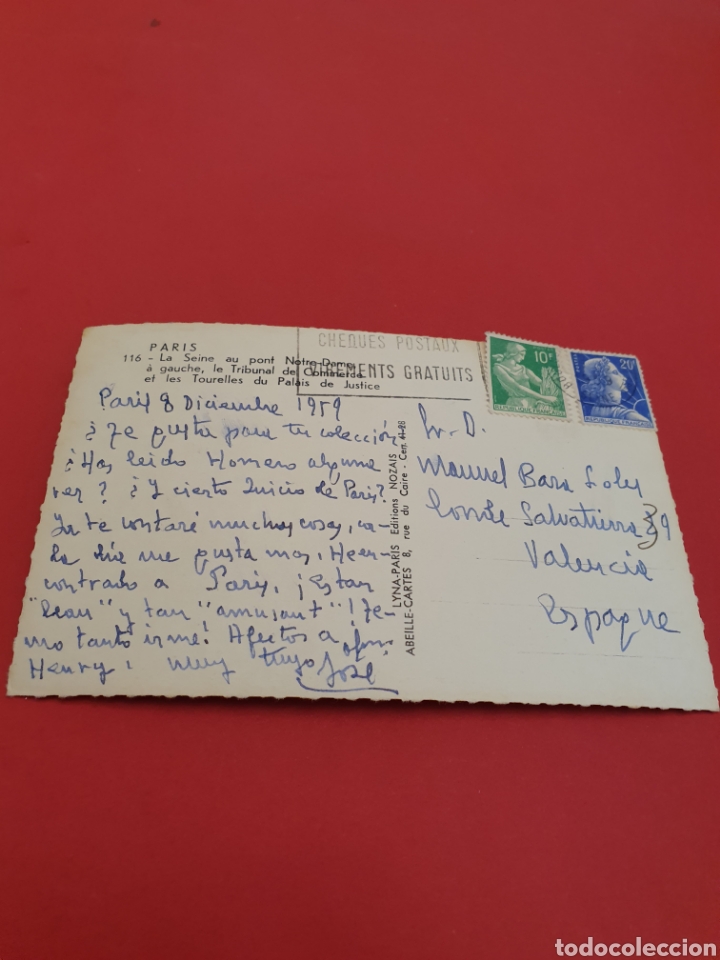 PARIS
116 - La Seine au pont Notre-Dame
à gauche, le Tribunal de Commerce
et les Tourelles du Palais de Justice
CHEQUES POSTAUX
VIREMENTS GRATUITS
10F
REPUBLIQUE FRANÇAISE
20F
Paris 8 Diciembre 1959
¿Te gusta para tu colección
¿Has leido Homero alguna
vez? ¿Y cierto Juicio de Paris?
Ya te contaré muchas cosas, ca-
da día me gusta mas. He en-
contrado a Paris, ¡Es tan
"beau" y tan "amusant"! Te-
mo tanto irme! Afectos a
Henry. muy tuyo José
LYNA-PARIS Editions NOZAIS
ABEILLE-CARTES 8, rue du Caire - Cen. 41-28
Sr. D.
Manuel Bara Soler
Conde Salvatierra 39
Valencia
Espagne
todocoleccion